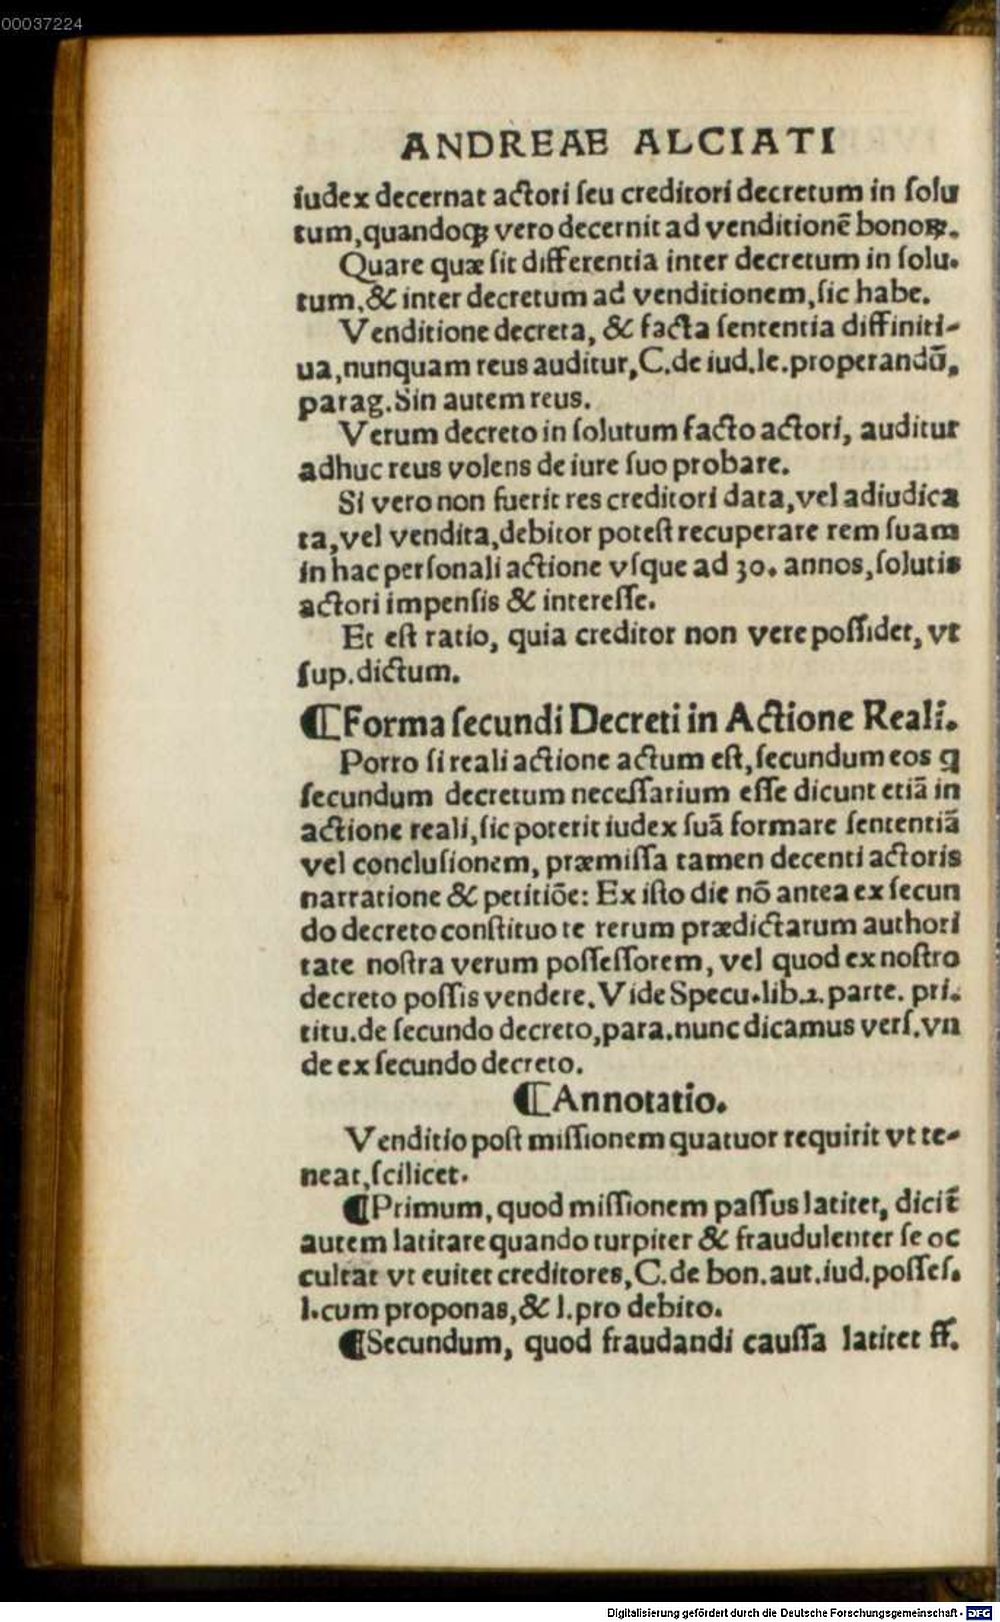 00037224
ANDREAE ALCIATI
iudex decernat actori ſeu creditori decretum in ſolu
tum,quandoq; vero decernit ad venditionē bonoꝝ.
Quare quæ ſit differentia inter decretum in ſolu.
tum.& inter decretum ad venditionem,ſic habe.
Venditione decreta, & facta ſententia diffiniti-
ua,nunquam reus auditur,C.de iud.le.properandū,
parag.Sin autem reus.
Verum decreto in ſolutum facto actori, auditur
adhuc reus volens de iure ſuo probare.
Si vero non fuerit res creditori data,vel adiudica
ta,vel vendita,debitor poteſt recuperare rem ſuam
in hac perſonali actione vſque ad 30. annos,ſolutis
actori impenſis & intereſſe.
Et eſt ratio, quia creditor non vere poſſidet, vt
ſup.dictum.
¶Forma ſecundi Decreti in Actione Reali.
Porro ſi reali actione actum eſt,ſecundum eos q
ſecundum decretum neceſſarium eſſe dicunt etiā in
actione reali,ſic poterit iudex ſuā formare ſententiā
vel concluſionem, præmiſſa tamen decenti actoris
narratione & petitiōe: Ex iſto die nō antea ex ſecun
do decreto conſtituo te rerum prædictarum authori
tate noſtra verum poſſeſſorem, vel quod ex noſtro
decreto poſſis vendere.Vide Specu.lib.2.parte. pri.
titu.de ſecundo decreto,para.nunc dicamus verſ.vn
de ex ſecundo decreto.
¶Annotatio.
Venditio poſt miſſionem quatuor requirit vt te-
neat,ſcilicet.
¶Primum, quod miſſionem paſſus latitet, dicit̄
autem latitare quando turpiter & fraudulenter ſe oc
cultat vt euitet creditores,C.de bon.aut.iud.poſſeſ.
l.cum proponas,& l.pro debito.
¶Secundum, quod fraudandi cauſſa latitet ff.
Digitalisierung gefördert durch die Deutsche Forschungsgemeinschaft - DFG